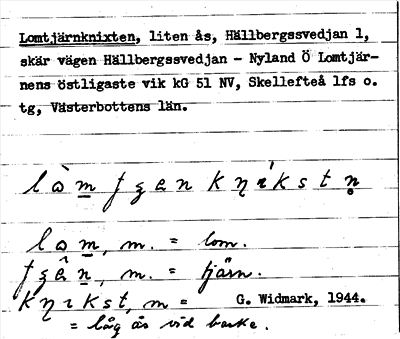 Lomtjärnknixten, liten ås, Hällbergssvedjan 1,
skär vägen Hällbergssvedjan - Nyland Ö Lomtjär-
nens östligaste vik kG 51 NV, Skellefteå lfs o.
tg, Västerbottens län.
lo̊m, m. = lom.
m. = tjärn.
m = G. Widmark, 1944.
= låg ås vid backe.